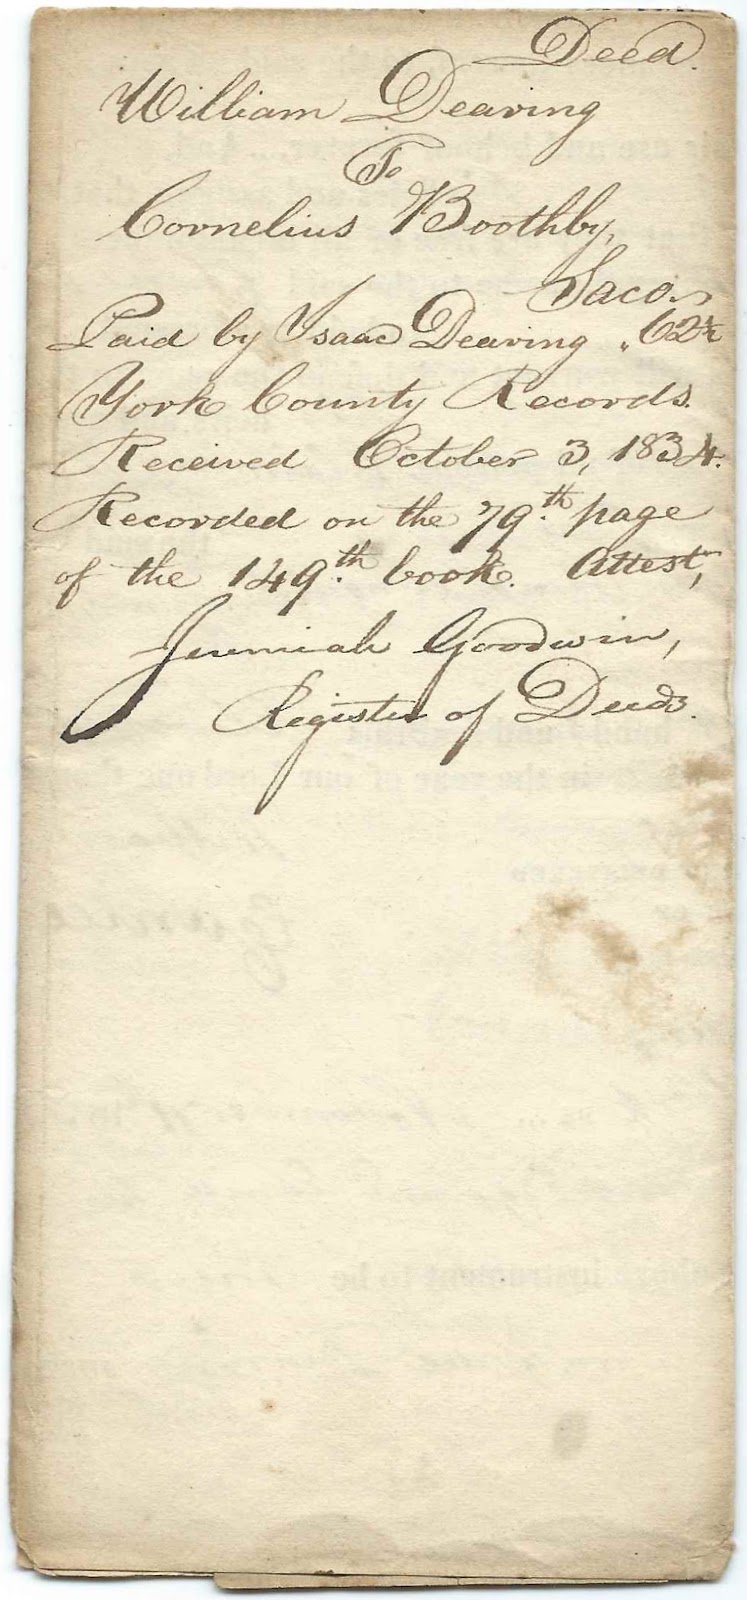 Deed.
William Dearing
To
Cornelius Boothby,
Saco.
Paid by Isaac Dearing „62½
York County Records.
Received October 3, 1834.
Recorded on the 79th. page
of the 149th. book. Attest,
Jeremiah Goodwin,
Register of Deeds.